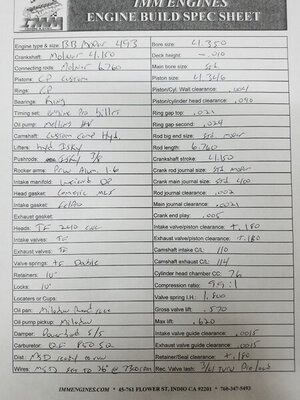 IMM ENGINES
ENGINE BUILD SPEC SHEET
Engine type & size: BB Mopar 493
Bore size: 4.350
Crankshaft: Molnar 4.150
Deck height: -.010
Connecting rods: Molnar 6.760
Main bore size: Std.
Pistons: CP Custom
Piston size: 4.346
Rings: CP
Piston/Cyl. Wall clearance: .004
Bearings: King
Piston/cylinder head clearance: .040
Timing set: billet
Ring gap top: .021
Oil pump: Melling HV
Ring gap second: .024
Camshaft: Custom Comp Hyd.
Rod big end size: Std mopar
Lifters: hyd
Rod length: 6.760
Pushrods: 3/8
Crankshaft stroke: 4.150
Rocker arms: Alum. 1.6
Crank rod journal size: Std mopar
Intake manifold: RP
Crank main journal size: Std 400
Head gasket: Cometic MLS
Rod journal clearance: .002
Intake gasket: FelPro
Main journal clearance: .0021
Exhaust gasket:
Crank end play: .005
Heads: TF 240 CNC
Intake valve/piston clearance: +.180
Intake valves: TF
Exhaust valve/piston clearance: +.180
Exhaust valves: TF
Camshaft intake C/L: 110
Valve springs: TF Double
Camshaft exhaust C/L: 114
Retainers: 10°
Cylinder head chamber CC: 76
Locks: 10°
Compression ratio: 9.9:1
Locators or Cups:
Valve spring I.H.: 1.800
Oil pan: Milodon
Gross valve lift: .570
Oil pump pickup: Milodon
Max lift: .620
Damper:
Intake valve guide clearance: .0015
Carburetor: QF 850
Exhaust valve guide clearance: .0015
Dist: MSD ready to run
Retainer/Seal clearance: +.180
Wires: MSD
Rec. Valve lash:
IMMENGINES.COM * 45-761 FLOWER ST, INDIO CA 92201 * 760-347-5493